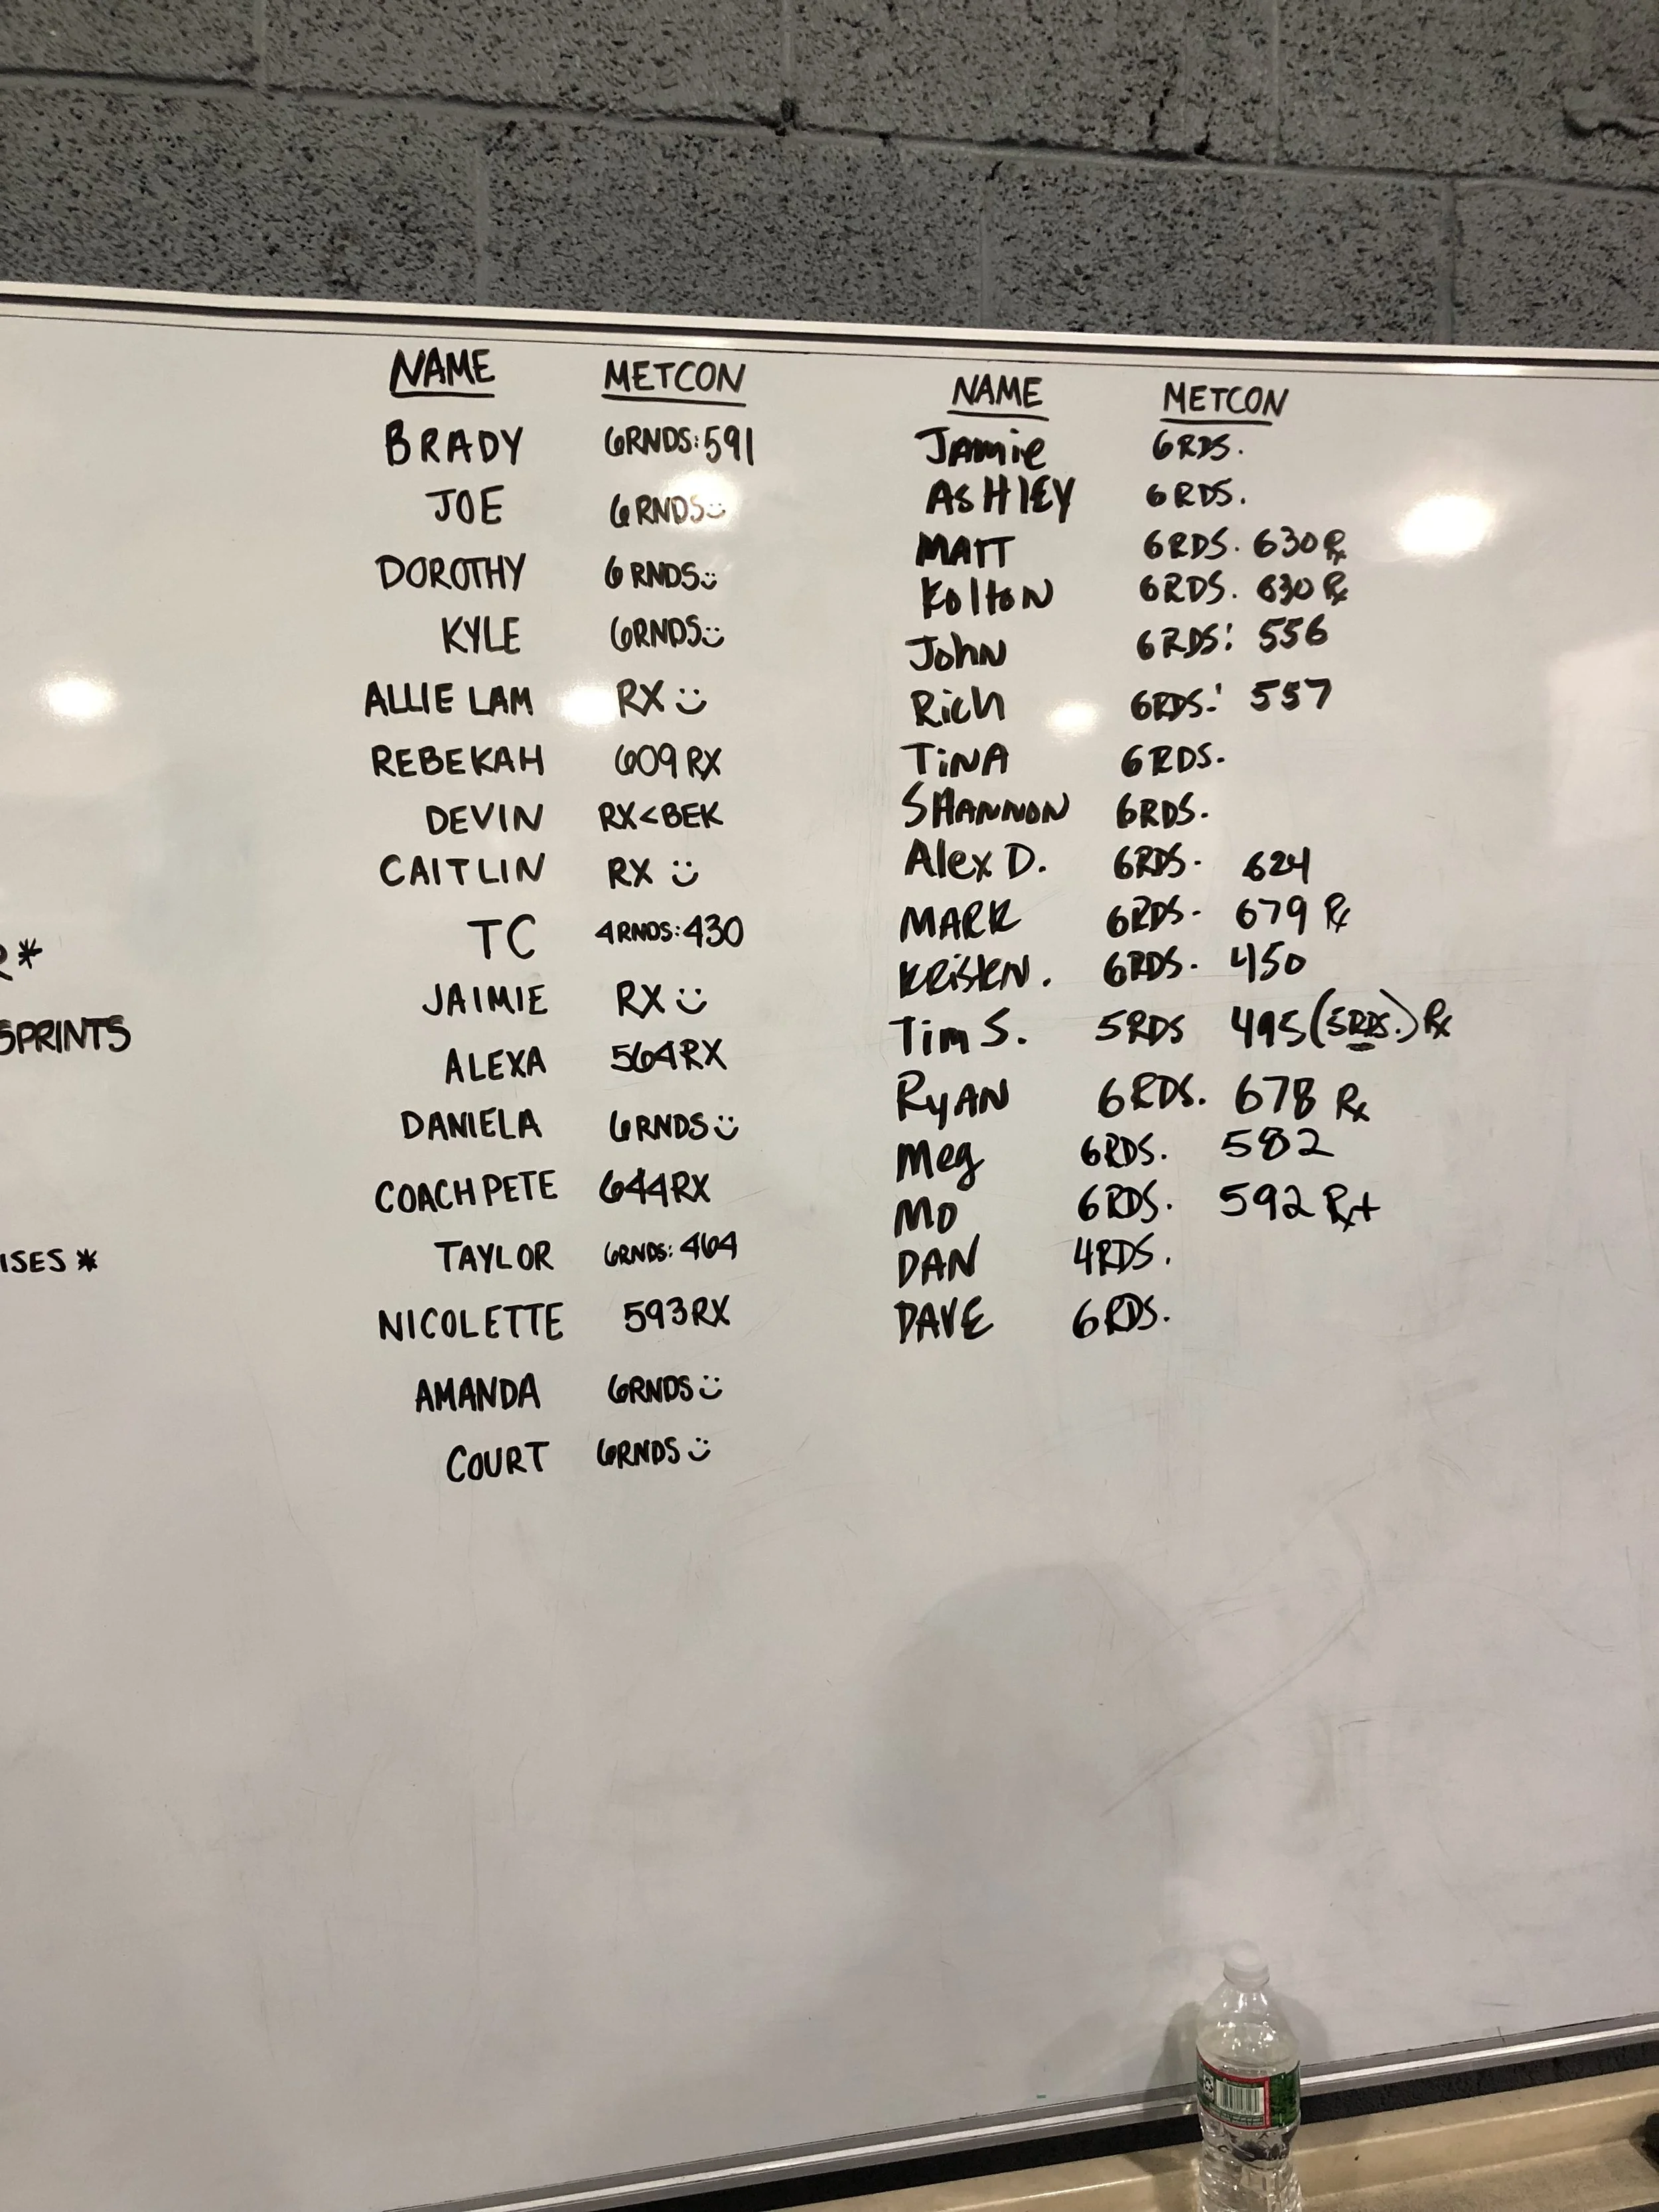 NAME METCON
BRADY 6RNDS:591
JOE 6RNDS:)
DOROTHY 6RNDS:)
KYLE 6RNDS:)
ALLIE LAM RX :)
REBEKAH 609 RX
DEVIN RX<BEK
CAITLIN RX :)
TC 4RNDS:430
JAIMIE RX :)
ALEXA 564RX
DANIELA 6RNDS:)
COACH PETE 644RX
TAYLOR 6RNDS:464
NICOLETTE 593RX
AMANDA 6RNDS:)
COURT 6RNDS:)
NAME METCON
Jamie 6RDS.
ASHlEY 6RDS.
MATT 6RDS. 630 Rx
KoltoN 6RDS. 630 Rx
JohN 6RDS: 556
Rich 6RDS: 557
TiNA 6RDS.
SHANNON 6RDS.
Alex D. 6RDS. 624
MARK 6RDS. 679 Rx
KRistN. 6RDS. 450
Tim S. 5RDS 495 (5RDS.) Rx
RyAN 6RDS. 678 Rx
Meg 6RDS. 582
MO 6RDS. 592 Rx+
DAN 4RDS.
DAVE 6RDS.
R*
SPRINTS
ISES *